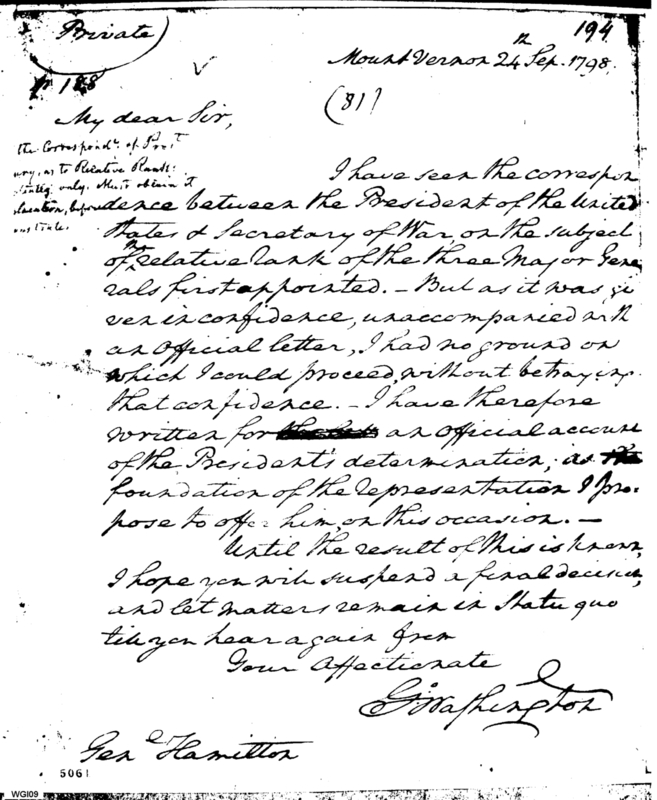 Private
194
Mount Vernon 24th Sep. 1798.
p 188
(81)
My dear Sir,
the Correspond.ce of Pres.t
ary, as to Relative Rank:
only. Must obtain it
I have seen the correspon
dence between the President of the United
States & Secretary of War, on the subject
of ye relative rank of the three Major Gene
rals first appointed. – But as it was gi
ven in confidence, unaccompanied with
an Official letter, I had no ground on
which I could proceed, without betraying
that confidence. – I have therefore
written for an official account
of the President's determination, as the
foundation of the representation I pro-
pose to offer him, on this occasion. –
Until the result of this is known,
I hope you will suspend a final decision,
and let matters remain in Statu quo
till you hear again from
Your Affectionate
Go Washington
Genl Hamilton
5061
WGI09